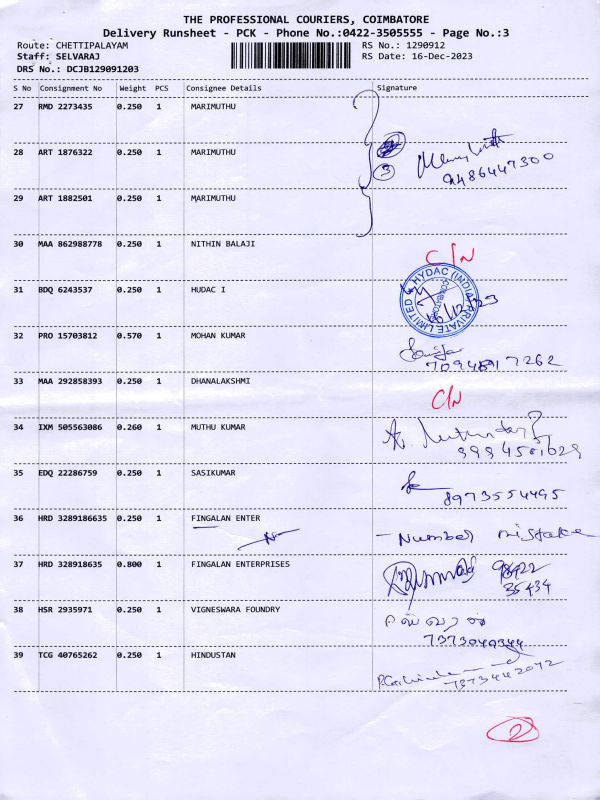 THE PROFESSIONAL COURIERS, COIMBATORE
Delivery Runsheet - PCK - Phone No.:0422-3505555 - Page No.:3
Route: CHETTIPALAYAM RS No.: 1290912
Staff: SELVARAJ RS Date: 16-Dec-2023
DRS No.: DCJB129091203
S No Consignment No Weight PCS Consignee Details Signature
27 RMD 2273435 0.250 1 MARIMUTHU
28 ART 1876322 0.250 1 MARIMUTHU
3 9486447300
29 ART 1882501 0.250 1 MARIMUTHU
30 MAA 862988778 0.250 1 NITHIN BALAJI
C/N
31 BDQ 6243537 0.250 1 HUDAC I
HYDAC (INDIA) PRIVATE LIMITED
COIMBATORE
32 PRO 15703812 0.570 1 MOHAN KUMAR
33 MAA 292858393 0.250 1 DHANALAKSHMI
C/N
34 IXM 505563086 0.260 1 MUTHU KUMAR
35 EDQ 22286759 0.250 1 SASIKUMAR
8973554495
36 HRD 3289186635 0.250 1 FINGALAN ENTER
- Number mistake
37 HRD 328918635 0.800 1 FINGALAN ENTERPRISES
98422
35434
38 HSR 2935971 0.250 1 VIGNESWARA FOUNDRY
7373049344
39 TCG 40765262 0.250 1 HINDUSTAN
7373442072
2